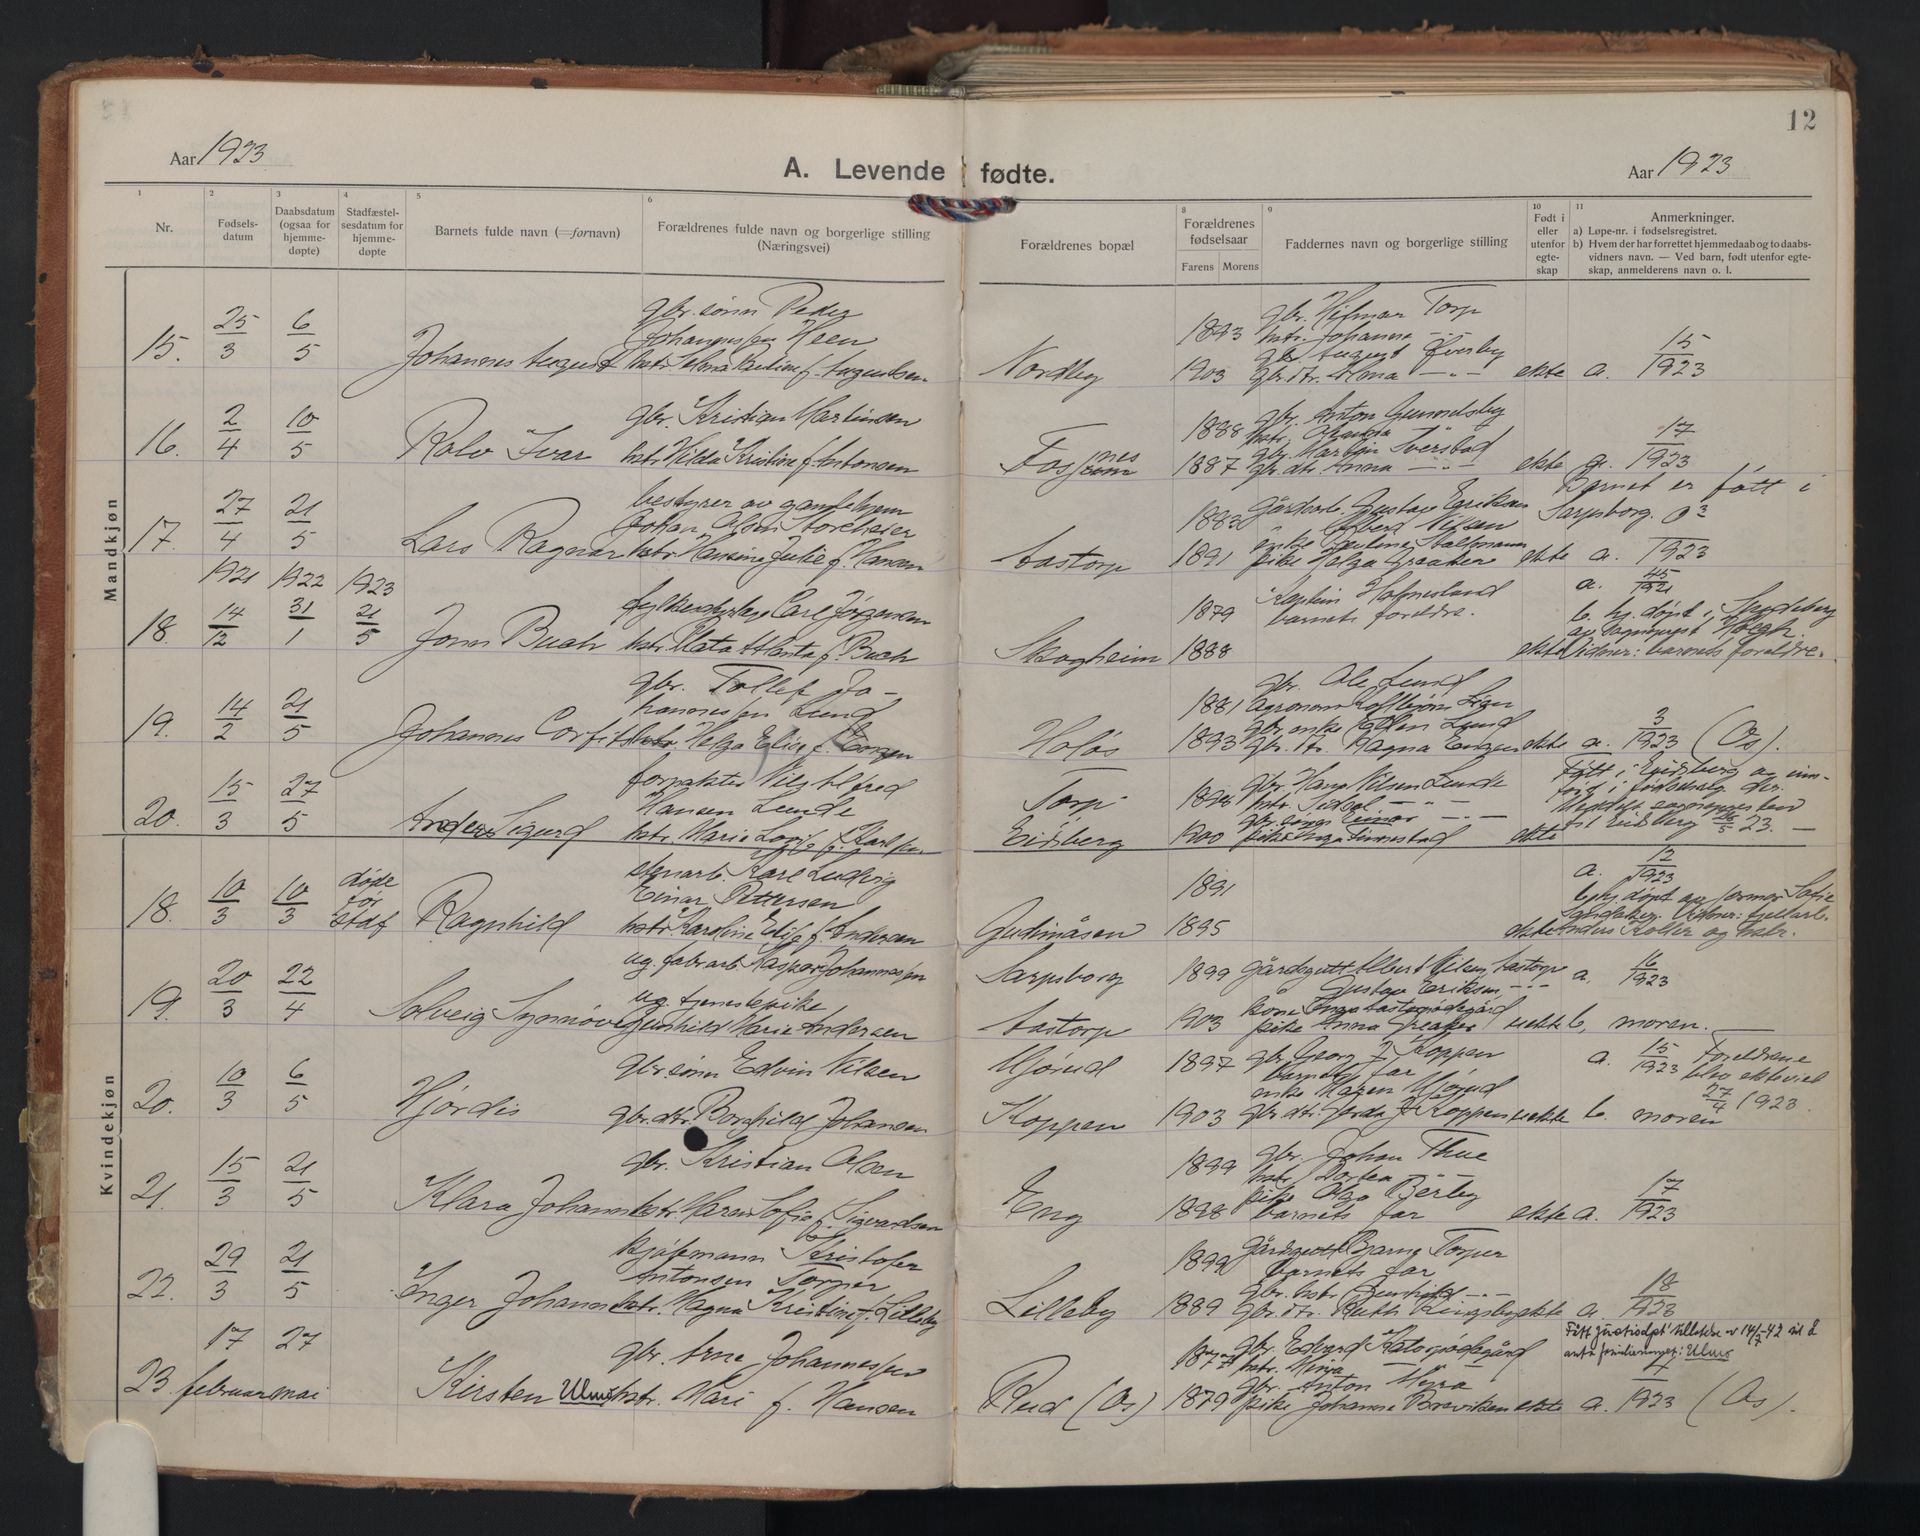 12
Aar 1923
A. Levende fødte.
Aar 1923
1 2 3 4 5 6 8 9 10 11
Nr.
Fødsels-
datum
Daabsdatum
(ogsaa for
hjemme-
døpte)
Stadfæstel-
sesdatum for
hjemme-
døpte
Barnets fulde navn (=fornavn)
Forældrenes fulde navn og borgerlige stilling
(Næringsvei)
Forældrenes bopæl
Forældrenes
fødselsaar
Farens Morens
Faddernes navn og borgerlige stilling
Født i
eller
utenfor
egte-
skap
Anmerkninger.
a) Løpe-nr. i fødselsregistret.
b) Hvem der har forrettet hjemmedaab og todaabs-
vidners navn. — Ved barn, født utenfor egte-
skap, anmelderens navn o. l.
Mandkjøn
15. 25/3 6/5 Johannes August
gbr. sønn Peder
Johannessen Heen
hstr. Selma Pauline f. Augustsen
Nordby
1893
1903
gbr. Hilmar Torp
hstr. Johanne -"-
gbr. August Øverby
gbr. dtr. Alma -"-
ekte a. 15/1923
16. 2/4 10/5 Rolv Ivar
gbr. Kristian Martinsen
hstr. Hilda Kristine f. Antonsen
1888
1887
gbr. Anton
gbr. dtr. Anna -"-
ekte a. 17/1923
17. 27/4 21/5 Lars Ragnar
bestyrer av gamlehjem
Johan Olsen
hstr. Hansine Julie f. Hansen
Aastorp
1883
1891
Gustav Eriksen
Albert Nilsen
enke Pauline
pike Helga Greaker
ekte
Barnet er født i
Sarpsborg.
a. 1923
1921 1922 1923
18. 14/12 31/1 21/5 Jonn Buch
Carl Jørgensen
hstr. Marta f. Buch
Skogheim
1879
1888
Kaptein
barnets foreldre.
ekte
a. 45/1921
b. hj. døpt i Spydeberg
av sogneprest
Vidner: barnets foreldre.
19. 14/2 21/5 Johannes Corfits
gbr. Tollef Jo-
hannessen Lund
hstr. Helga Elise f. Engen
Holøs
1881
1893
gbr. Ole Lund
gbr. enke Ellen Lund
gbr. dtr. Ragna Engen
ekte a. 3/1923 (Os).
20. 15/3 27/5 Anders Sigurd
forpakter Nils Alfred
Hansen Lunde
hstr. Marie Lovise f. Karlsen
Torp
Eidsberg
1898
1900
gbr. Hans Nilsen Lunde
hstr. -"-
gbr. sønn Einar -"-
ekte
Født i Eidsberg og inn-
ført i fødselsreg. der.
Meddelt sognepresten
til Eidsberg 28/5 23. —
Kvindekjøn
18. 10/3 10/3 døde
før
stadf. Ragnhild
stenarb. Karl Ludvig
Einar Pettersen
hstr. Karoline Elise f. Andersen
Gudimåsen
1891
1895
ekte
a. 12/1923
b. hj. døpt av jormor Sofie
Vidner: fjellarb.
Anders Koller og hstr.
19. 20/3 22/4 Solveig Synnøve
ug. fabrarb. Kasper Johannessen
ug. tjenestepike
Gunhild Marie Andersen
Sarpsborg
Aastorp
1899
1903
Gårdsgutt Albert Nilsen Aastorp
Gustav Eriksen -"-
kone Inga
pike Anna Greaker
uekte
a. 16/1923
b. moren.
20. 10/3 6/5 Hjørdis
gbr. sønn Edvin Nilsen
gbr. dtr. Borghild Johansen
Mjørud
Koppen
1897
1903
gbr. Georg J. Koppen
barnets far
enke Maren Mjørud
gbr. dtr. Gerda J. Koppen
uekte
a. 15/1923 Foreldrene
blev ekteviet
27/4 1923.
b. moren
21. 15/3 21/5 Klara Johanne
gbr. Kristian Olsen
hstr. Maren Sofie f. Sigvardsen
Eng
1899
1898
gbr. Johan Thue
hstr. Dortea -"-
pike Olga Bærby
barnets far
ekte a. 17/1923
22. 29/3 21/5 Inger Johanne
kjøpmann Kristofer
Antonsen Torper
hstr. Magna Kristine f. Lilleby
Lilleby
1899
1889
Gårdsgutt Bjarne Torper
barnets far
gbr. hstr. Gunhild -"-
gbr. dtr. Ruth Ringsby
ekte a. 18/1923
23. 17 februar 27 mai Kirsten Ulms
gbr. Arne Johannessen
hstr. Mari f. Hansen
Rud (Os)
1877
1879
gbr. Edvard
hstr. Mina
gbr. Anton Myra
pike Johanne Breviken
ekte
Fått justisdpt' tillatelse av 14/7-42 til å
anta familienavnet: Ulms
a. 4/1923 (Os).